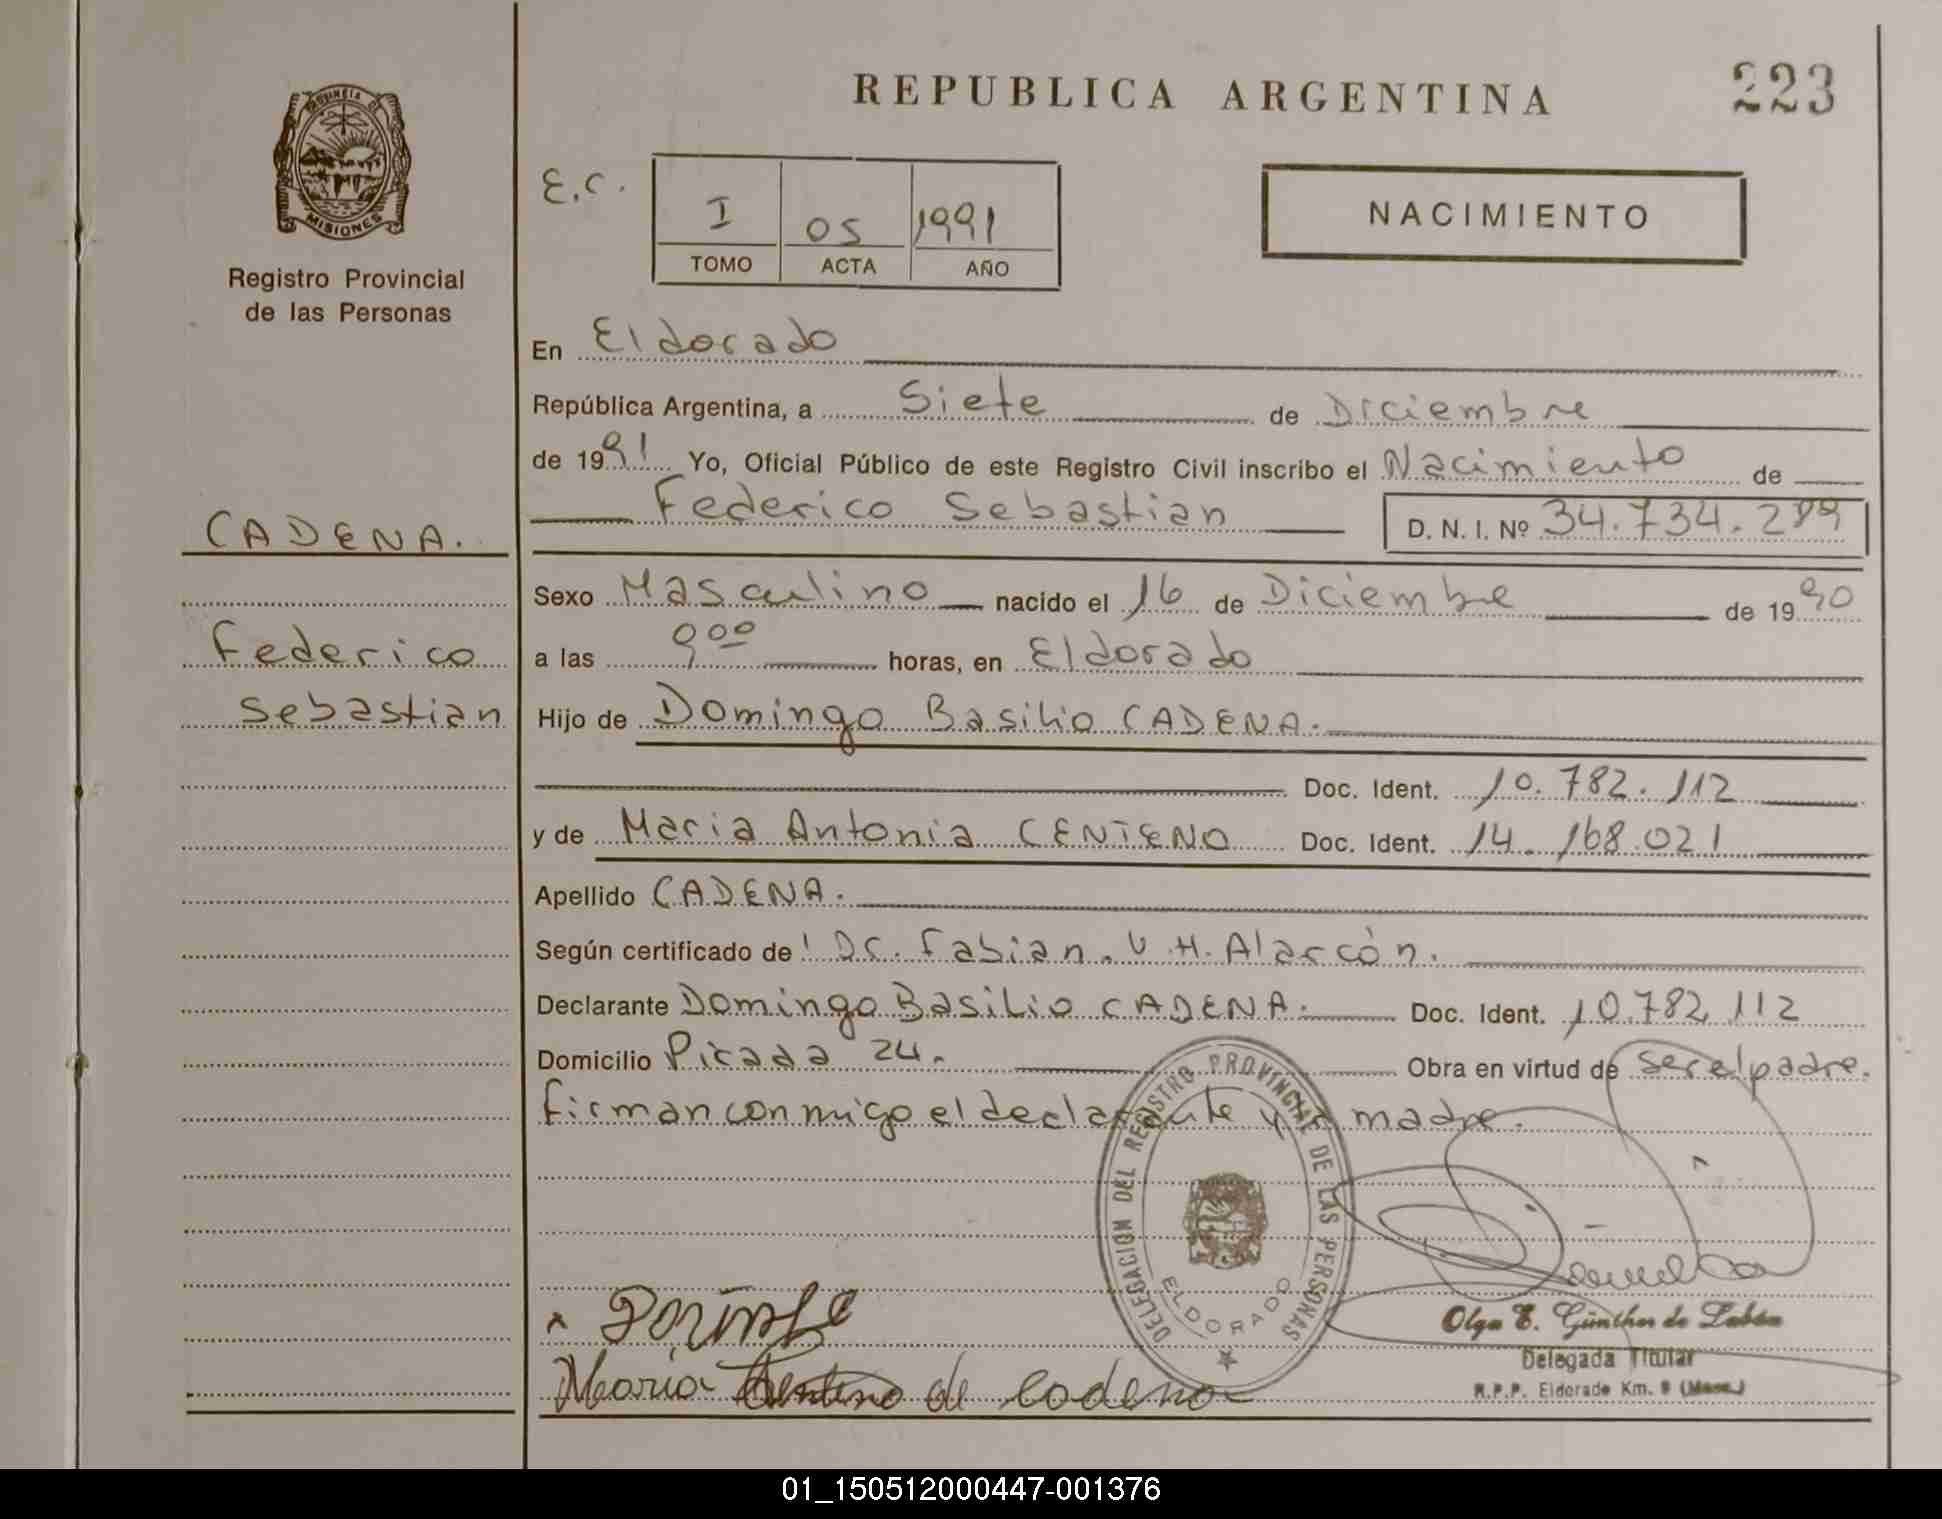 REPUBLICA ARGENTINA
223
PROVINCIA DE
MISIONES
Registro Provincial
de las Personas
E.C.
I 05 1991
TOMO ACTA AÑO
NACIMIENTO
En Eldorado
República Argentina, a Siete de Diciembre
de 1991 Yo, Oficial Público de este Registro Civil inscribo el Nacimiento de
Federico Sebastian D. N. I. Nº 34.734.299
CADENA.
Federico
Sebastian
Sexo Masculino nacido el 16 de Diciembre de 1990
a las 9 00 horas, en Eldorado
Hijo de Domingo Basilio CADENA.
Doc. Ident. 10.782.112
y de Maria Antonia CENTENO Doc. Ident. 14.168.021
Apellido CADENA.
Según certificado de Dr. Fabian. V.H. Alarcón.
Declarante Domingo Basilio CADENA. Doc. Ident. 10.782.112
Domicilio Picada 24. Obra en virtud de ser el padre.
firman conmigo el declarante y la madre.
DELEGACION DEL REGISTRO PROVINCIAL DE LAS PERSONAS
ELDORADO
Maria Centeno de Cadena
Olga E. Günther de Labán
Delegada Titular
R.P.P. Eldorado Km. 9 (Mnes.)
01_150512000447-001376